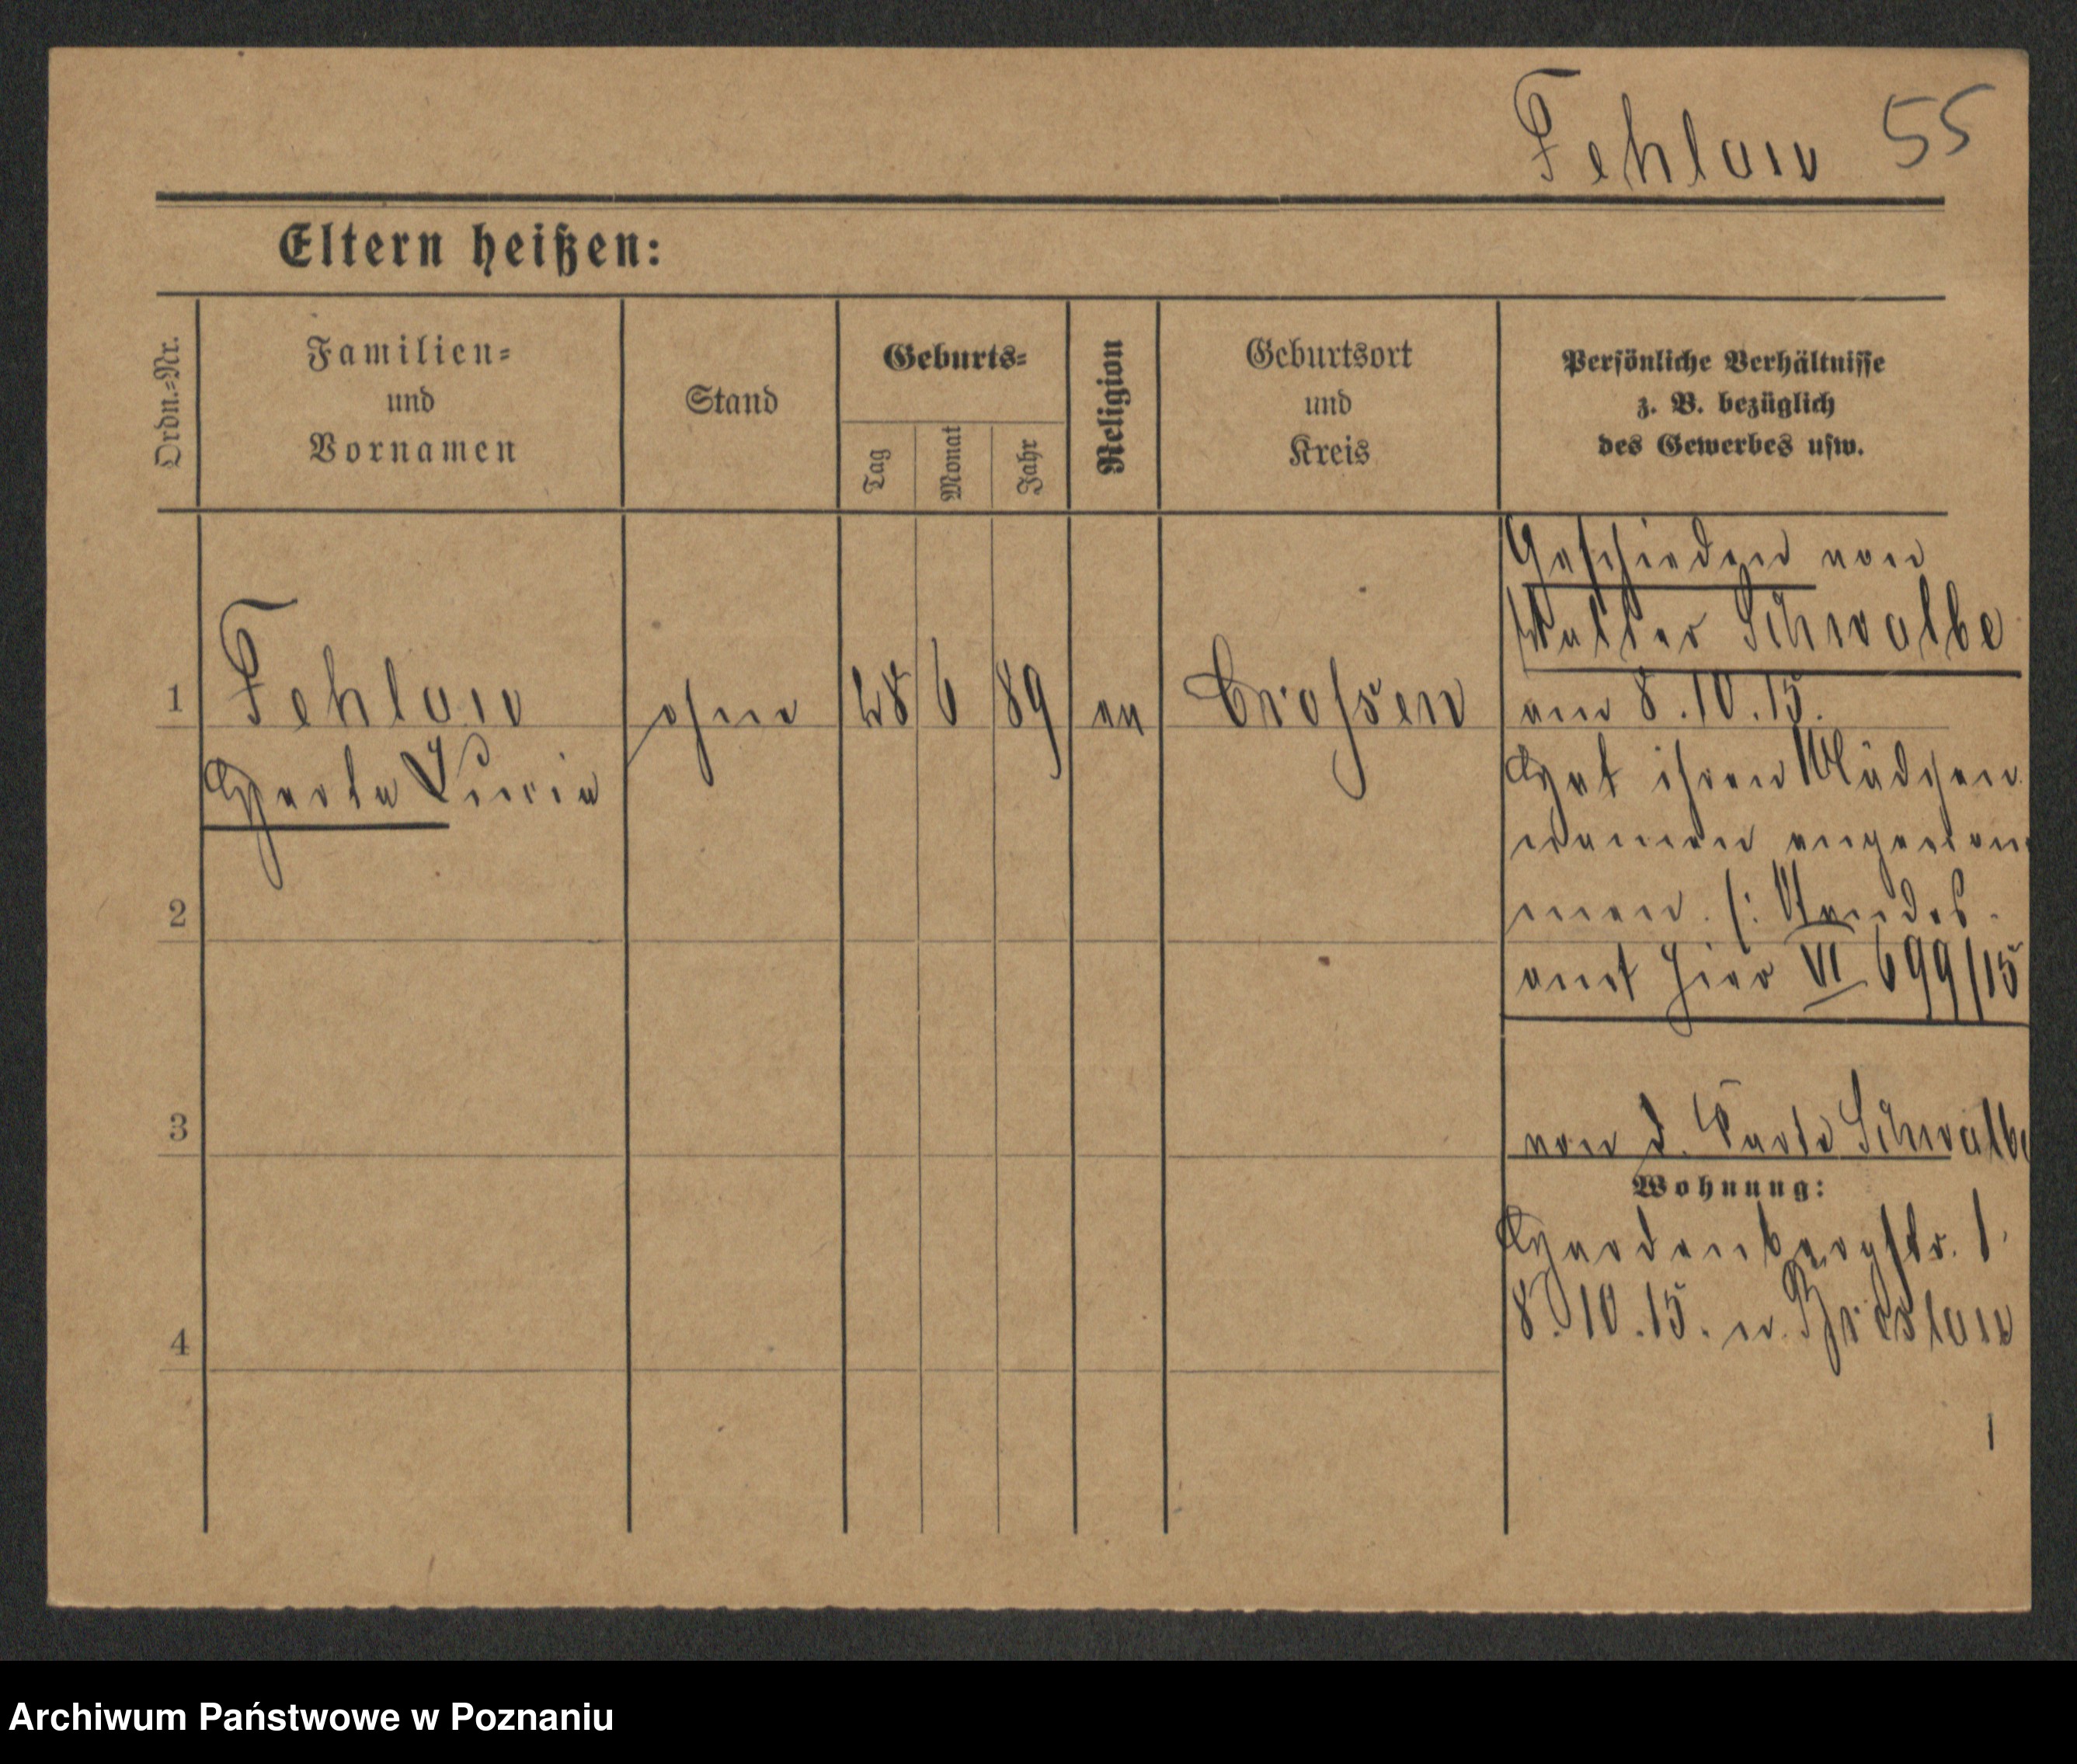 Fehlow 55
Eltern heißen:
Ordn.=Nr.
Familien=
und
Vornamen
Stand
Geburts=
Tag
Monat
Jahr
Religion
Geburtsort
und
Kreis
Persönliche Verhältnisse
z. B. bezüglich
des Gewerbes usw.
1
Fehlow
Herta Lucia
ohne
28 6 89
ev
Crossen
Geschieden von
Walter Schwalbe
am 8.10.15.
Hat ihren Mädchen
namen angenom
men. (: Standes-
amt hier VI 699/15
von d. Karte Schwalbe
Wohnung:
Hardenbergstr. 1.
8.10.15. n. Breslau
2
3
4
Archiwum Państwowe w Poznaniu